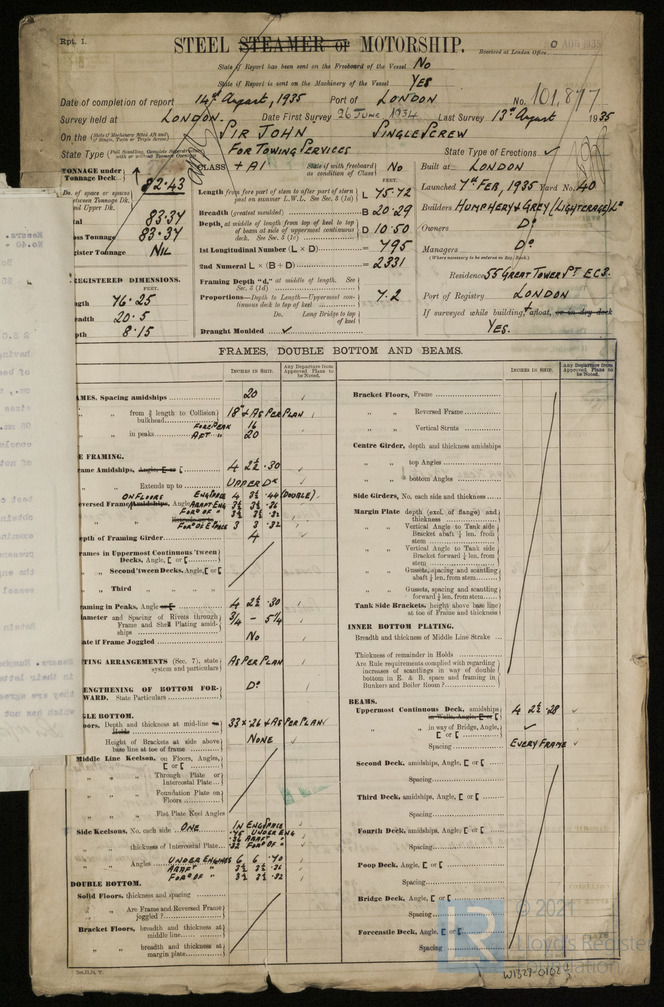 Rpt. 1.
STEEL STEAMER or MOTORSHIP.
Received at London Office
State if Report has been sent on the Freeboard of the Vessel No
State if Report is sent on the Machinery of the Vessel YES
Date of completion of report 14th August, 1935 Port of LONDON No. 101,877
Survey held at LONDON. Date First Survey 26 June 1934 Last Survey 13th August 1935
On the SIR JOHN SINGLE SCREW
State Type FOR TOWING SERVICES State Type of Erections ✓
TONNAGE under Tonnage Deck 82.43
83.34
Gross Tonnage 83.34
Register Tonnage NIL
REGISTERED DIMENSIONS.
FEET.
Length 76.25
Breadth 20.5
Depth 8.15
CLASS + A1 State if with freeboard as condition of Class No
Length from fore part of stem to after part of stern post on summer L.W.L. See Sec. 3 (1a) L 75.72
Breadth (greatest moulded) B 20.29
Depth, at middle of length from top of keel to top of beam at side of uppermost continuous deck. See Sec. 3 (1c) D 10.50
1st Longitudinal Number (L × D) = 795
2nd Numeral L × (B + D) = 2331
Framing Depth "d," at middle of length. See Sec. 3 (1d)
Proportions—Depth to Length—Uppermost continuous deck to top of keel 7.2
Do. Long Bridge to top of keel
Draught Moulded ✓
Built at LONDON
Launched 7th FEB, 1935 Yard No. 40
Builders HUMPHERY & GREY (LIGHTERAGE) Ld
Owners Do
Managers Do
(Where necessary to be entered on Reg. Book.)
Residence 55 GREAT TOWER ST E.C.3.
Port of Registry LONDON
If surveyed while building, afloat, or in dry dock
YES.
FRAMES, DOUBLE BOTTOM AND BEAMS.
INCHES IN SHIP.
Any Departure from Approved Plans to be Noted.
FRAMES, Spacing amidships 20
" " from 3/5 length to Collision bulkhead 18" & AS PER PLAN
" " in peaks FORE PEAK 16
AFT " 20
FRAMING.
Frame Amidships, Angle, [ or [ 4 2½ .30
" " Extends up to UPPER DK
Reversed Frame Amidships, Angle ON FLOORS ENG SPCE 4 3½ .44 (DOUBLE).
ABAFT ENG 3½ 3½ .36
FORD OF " 3½ 3½ .32
FORD OF E SPCE 3 3 .32
Depth of Framing Girder 4
Frames in Uppermost Continuous 'tween Decks, Angle, [ or [
" " Second 'tween Decks, Angle, [ or [
" " Third " "
Framing in Peaks, Angle or [ 4 2½ .30
Diameter and Spacing of Rivets through Frame and Shell Plating amidships 3/4 - 5¼
State if Frame Joggled No
ARRANGEMENTS (Sec. 7), state system and particulars AS PER PLAN
STRENGTHENING OF BOTTOM FORWARD. State Particulars Do
SINGLE BOTTOM.
Floors, Depth and thickness at mid-line in Holds 33 × .26 & AS PER PLAN
Height of Brackets at side above base line at toe of frame NONE
Middle Line Keelson, on Floors, Angles, [ or [
" " Through Plate or Intercostal Plate
" " Foundation Plate on Floors
" " Flat Plate Keel Angles
Side Keelsons, No. each side ONE IN ENG SPACE
.75 UNDER ENG
.36 ABAFT "
" " thickness of Intercostal Plate .32 FORD OF "
" " Angles UNDER ENGINES 6 6 .70
ABAFT " 3½ 3½ .36
FORD OF " 3½ 3½ .32
DOUBLE BOTTOM.
Solid Floors, thickness and spacing
" " Are Frame and Reversed Frame joggled?
Bracket Floors, breadth and thickness at middle line
" " breadth and thickness at margin plate
INCHES IN SHIP.
Any Departure from Approved Plans to be Noted.
Bracket Floors, Frame
" " Reversed Frame
" " Vertical Struts
Centre Girder, depth and thickness amidships
" " top Angles
" " bottom Angles
Side Girders, No. each side and thickness
Margin Plate depth (excl. of flange) and thickness
" " Vertical Angle to Tank side Bracket abaft ¼ len. from stem
" " Vertical Angle to Tank side Bracket forward ¼ len. from stem
" " Gussets, spacing and scantling abaft ¼ len. from stem
" " Gussets, spacing and scantling forward ¼ len. from stem
Tank Side Brackets, height above base line at toe of Frame and thickness
INNER BOTTOM PLATING.
Breadth and thickness of Middle Line Strake
Thickness of remainder in Holds
Are Rule requirements complied with regarding increases of scantling in way of double bottom in E. & B. space and framing in Bunkers and Boiler Room?
BEAMS.
Uppermost Continuous Deck, amidships 4 2½ .28
in Wells, Angle, [ or [
" " in way of Bridge, Angle, [ or [ ✓
Spacing EVERY FRAME
Second Deck, amidships, Angle, [ or [
Spacing
Third Deck, amidships, Angle, [ or [
Spacing
Fourth Deck, amidships, Angle, [ or [
Spacing
Poop Deck, Angle, [ or [
Spacing
Bridge Deck, Angle, [ or [
Spacing
Forecastle Deck, Angle, [ or [
Spacing
© 2021
LR
Lloyd's Register
Foundation
W1327-0102